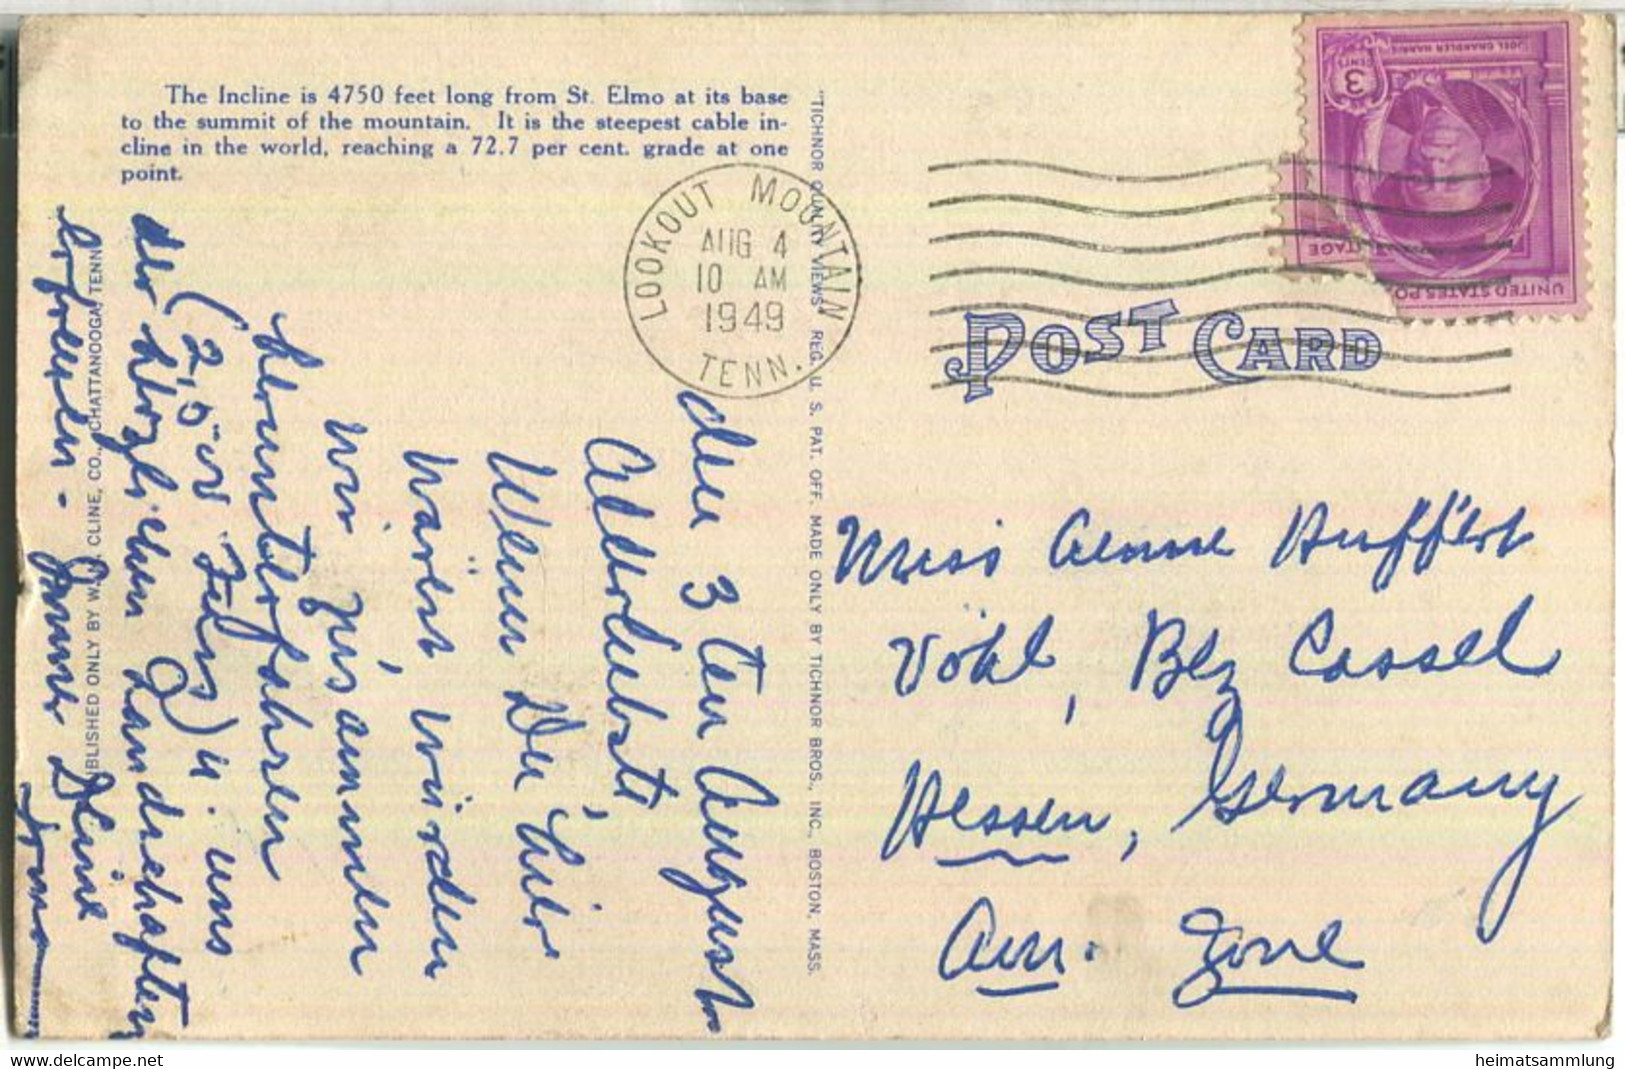 The Incline is 4750 feet long from St. Elmo at its base
to the summit of the mountain. It is the steepest cable in-
cline in the world, reaching a 72.7 per cent. grade at one
point.
LOOKOUT MOUNTAIN
AUG 4
10 AM
1949
TENN.
JOEL CHANDLER HARRIS
3
CENTS
UNITED STATES PO
TAGE
POST CARD
"TICHNOR QUALITY VIEWS" REG. U. S. PAT. OFF. MADE ONLY BY TICHNOR BROS., INC., BOSTON, MASS.
PUBLISHED ONLY BY W. M. CLINE, CO., CHATTANOOGA, TENN.
den 3ten August
Allerliebste,
Wenn Du hier
wärst, würden
wir zusammen
herunterfahren
(2,50 Fahrg) u. uns
der herzlichen Landschaften
erfreuen - Immer Deine
Irma
Miss Anne Ruffert
Vöhl, Bez Cassel
Hessen, Germany
Am. Zone
heimatsammlung